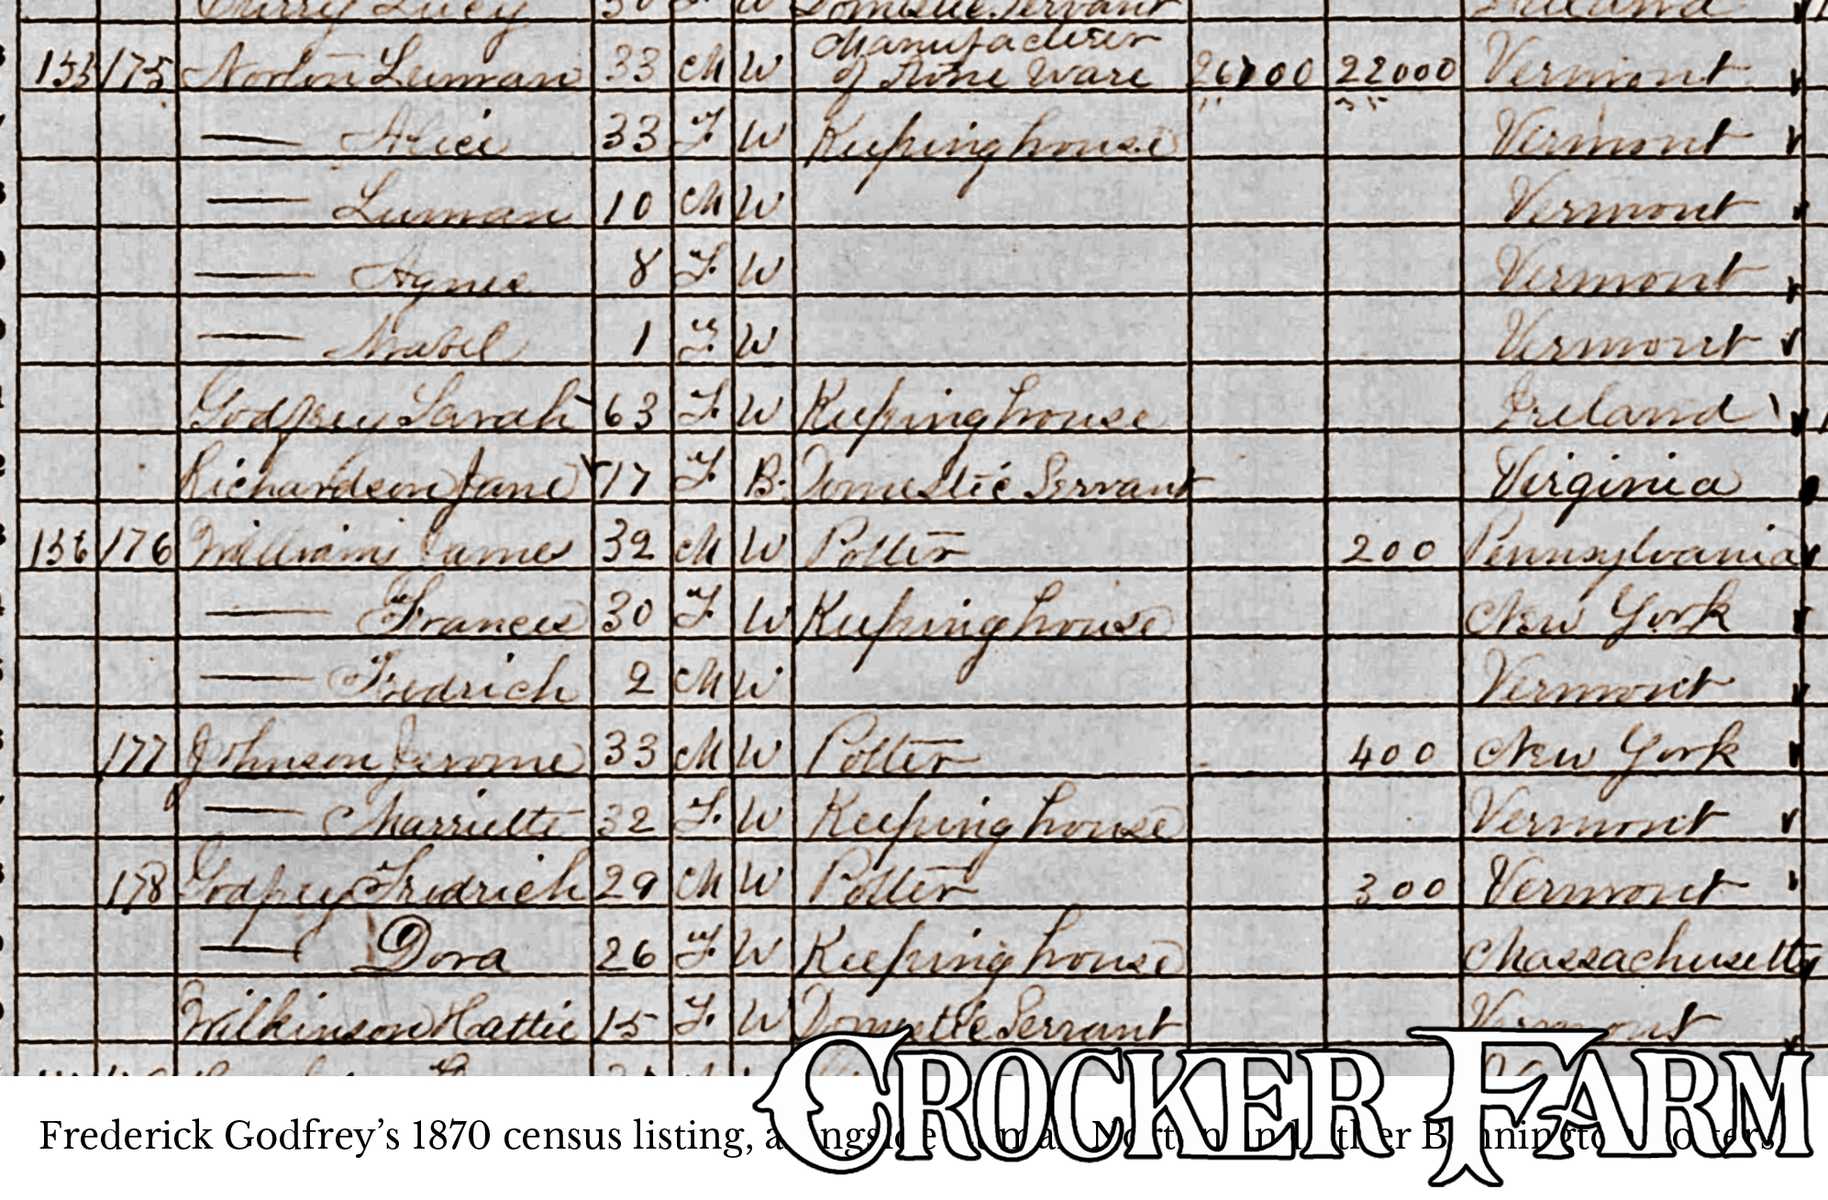 Lucy 30 F W Domestic Servant Ireland
153 175 Norton Luman 33 M W Manufacturer of Stone Ware 26700 22000 Vermont
— Alice 33 F W Keeping house Vermont
— Luman 10 M W Vermont
— Agnes 8 F W Vermont
— Mabel 1 F W Vermont
Godfrey Sarah 63 F W Keeping house Ireland
Richardson Jane 77 F B. Domestic Servant Virginia
156 176 Williams James 32 M W Potter 200 Pennsylvania
— Frances 30 F W Keeping house New York
— Fredrich 2 M W Vermont
177 Johnson Jerome 33 M W Potter 400 New York
— Marriette 32 F. W Keeping house Vermont
178 Godfrey Fredrich 29 M W Potter 300 Vermont
— Dora 26 F W Keeping house Massachusetts
Wilkinson Hattie 15 F W Domestic Servant Vermont
CROCKER FARM
Frederick Godfrey's 1870 census listing, alongside Luman Norton and other Bennington potters.